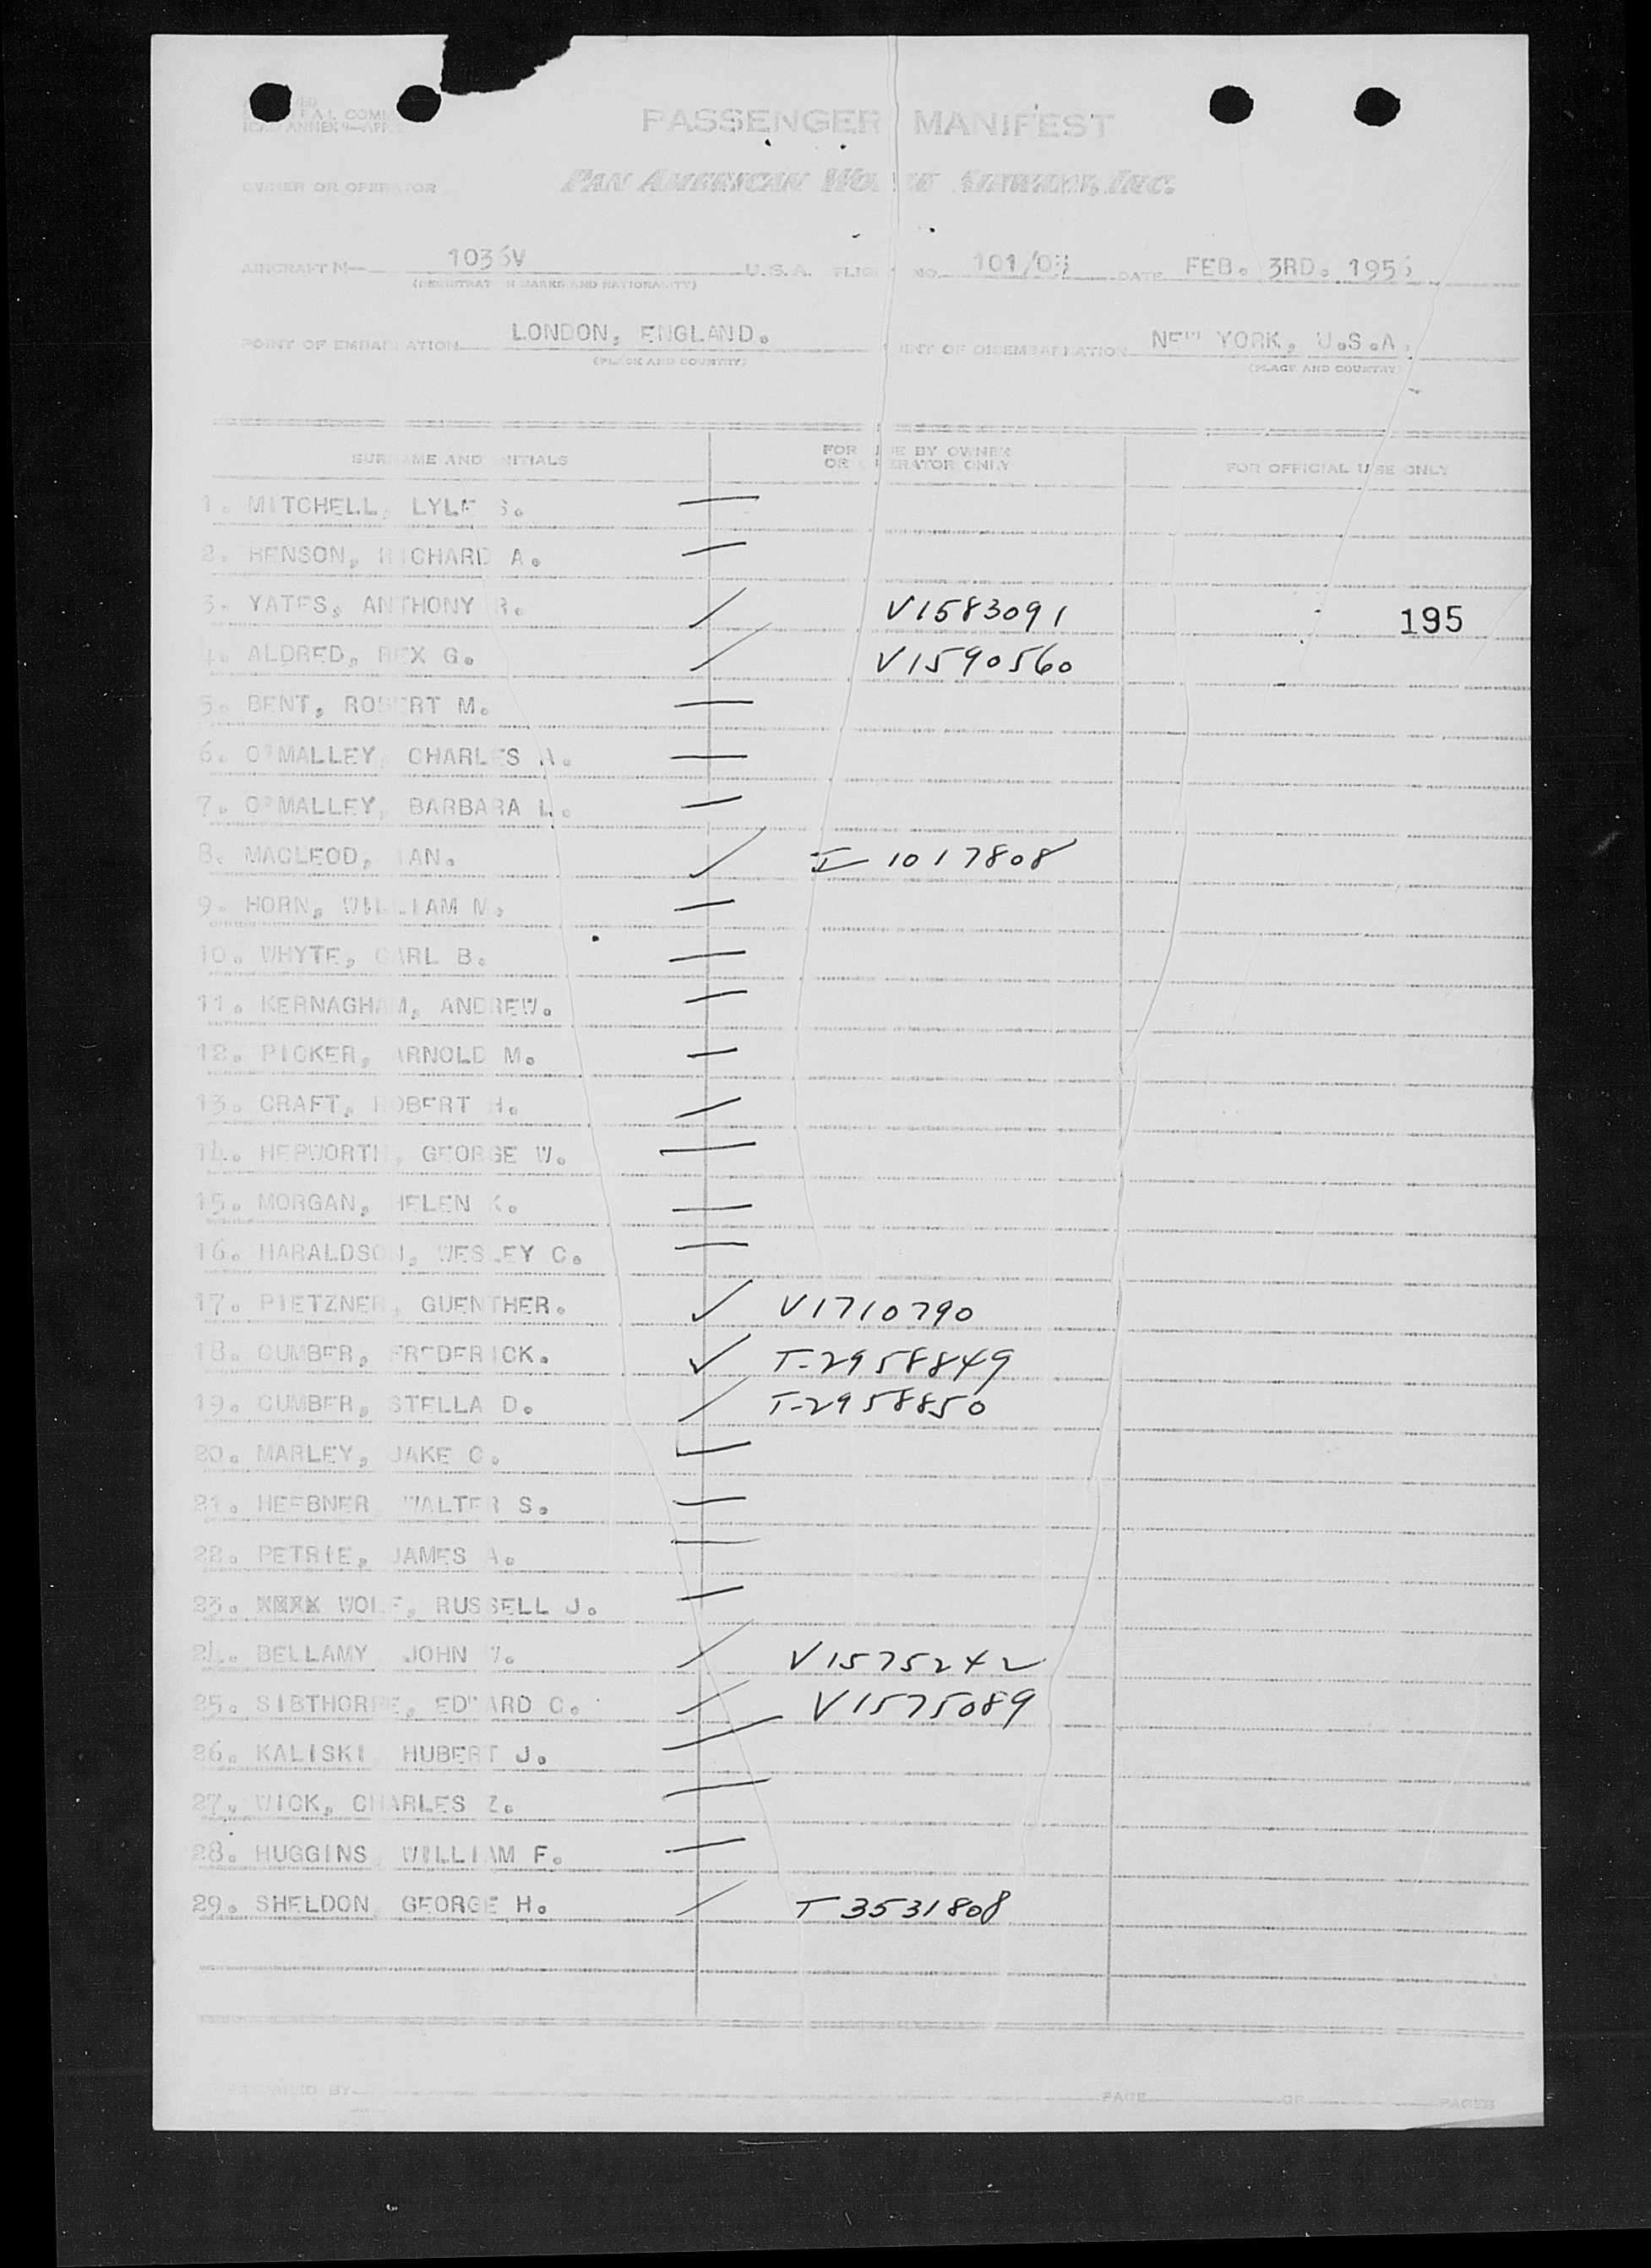 PASSENGER MANIFEST
OWNER OR OPERATOR PAN AMERICAN WORLD AIRWAYS, INC.
AIRCRAFT N 1036V U.S.A. FLIGHT NO. 101/03 DATE FEB. 3RD. 1956
(REGISTRATION MARKS AND NATIONALITY)
POINT OF EMBARKATION LONDON, ENGLAND. POINT OF DISEMBARKATION NEW YORK, U.S.A.
(PLACE AND COUNTRY) (PLACE AND COUNTRY)
SURNAME AND INITIALS FOR USE BY OWNER OR OPERATOR ONLY FOR OFFICIAL USE ONLY
1. MITCHELL, LYLE S.
2. HENSON, RICHARD A.
3. YATES, ANTHONY R. V1583091 195
4. ALDRED, REX G. V1590560
5. BENT, ROBERT M.
6. O'MALLEY, CHARLES A.
7. O'MALLEY, BARBARA L.
8. MACLEOD, IAN. I-1017808
9. HORN, WILLIAM M.
10. WHYTE, CARL B.
11. KERNAGHAM, ANDREW.
12. PICKER, ARNOLD M.
13. CRAFT, ROBERT H.
14. HEPWORTH, GEORGE W.
15. MORGAN, HELEN K.
16. HARALDSON, WESLEY C.
17. PIETZNER, GUENTHER. V1710790
18. CUMBER, FREDERICK. T-2958849
19. CUMBER, STELLA D. T-2958850
20. MARLEY, JAKE C.
21. HEEBNER, WALTER S.
22. PETRIE, JAMES A.
23. WOLF, RUSSELL J.
24. BELLAMY, JOHN W. V1575242
25. SIBTHORPE, EDWARD C. V1575089
26. KALISKI, HUBERT J.
27. WICK, CHARLES Z.
28. HUGGINS, WILLIAM F.
29. SHELDON, GEORGE H. T3531808
PREPARED BY PAGE OF PAGES